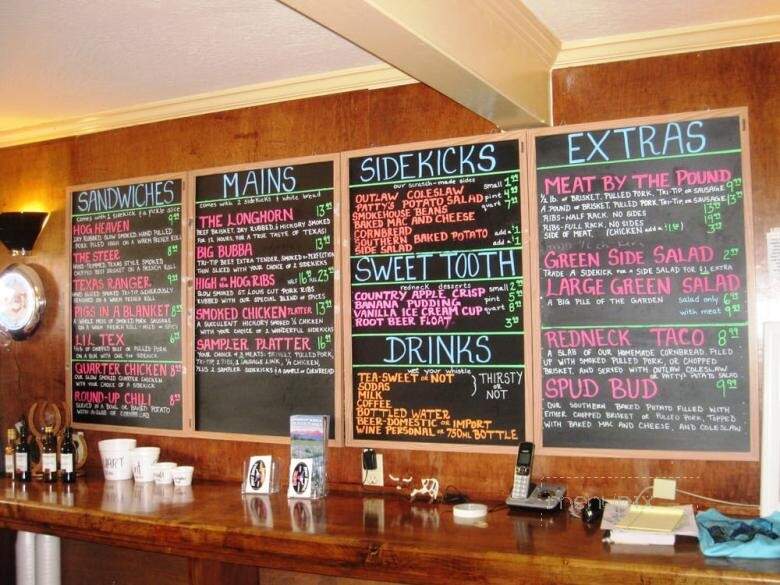 SANDWICHES
comes with 1 sidekick & pickle slice
HOG HEAVEN 9 99
DRY RUBBED, SLOW SMOKED, HAND PULLED
PORK PILED HIGH ON A WARM FRENCH ROLL
THE STEER 8 99
HAND CHOPPED TEXAS STYLE SMOKED
CHOPPED BEEF BRISKET ON A FRENCH ROLL
TEXAS RANGER 9
SLOW SMOKED TRI-TIP GENEROUSLY
ON A WARM FRENCH ROLL
PIGS IN A BLANKET 8
A WHOLE MESS OF SMOKED PORK SAUSAGE
ON A WARM FRENCH ROLL - MILD OR SPICY
LI'L TEX 6
OF CHOPPED BEEF OR PULLED PORK
ON A BUN WITH ONE SIDEKICK
QUARTER CHICKEN 8
OUR SLOW SMOKED QUARTER CHICKEN
WITH YOUR CHOICE OF A SIDEKICK
ROUND-UP CHILI 8
SERVED IN A BOWL OR BAKED POTATO
MAINS
comes with 2 sidekicks & white bread
THE LONGHORN 13 99
BEEF BRISKET, DRY RUBBED, & HICKORY SMOKED
FOR 12 HOURS, FOR A TRUE TASTE OF TEXAS!
BIG BUBBA 13 99
TRI-TIP BEEF EXTRA TENDER, SMOKED TO PERFECTION
THIN SLICED WITH YOUR CHOICE OF 2 SIDEKICKS
HIGH ON THE HOG RIBS half 16 full 23
SLOW SMOKED ST. LOUIS CUT PORK RIBS
RUBBED WITH OUR SPECIAL BLEND OF SPICES
SMOKED CHICKEN PLATTER 13
A SUCCULENT HICKORY SMOKED ½ CHICKEN
WITH YOUR CHOICE OF 2 WONDERFUL SIDEKICKS
SAMPLER PLATTER 16 99
YOUR CHOICE OF 2 MEATS: BRISKET, PULLED PORK,
TRI-TIP, 2 RIBS, 1 SAUSAGE LINK, ¼ CHICKEN,
PLUS 2 SAMPLER SIDEKICKS & CORNBREAD
SIDEKICKS
our scratch-made sides
OUTLAW COLESLAW small 1 99
PATTY'S POTATO SALAD pint 4 99
SMOKEHOUSE BEANS quart 7 99
BAKED MAC AND CHEESE
CORNBREAD
SOUTHERN BAKED POTATO add $1
SIDE SALAD add $1
SWEET TOOTH
redneck desserts
COUNTRY APPLE CRISP small 2
BANANA PUDDING pint 5
VANILLA ICE CREAM CUP quart 8
ROOT BEER FLOAT 3
DRINKS
wet your whistle
TEA-SWEET OR NOT
SODAS
MILK
COFFEE
THIRSTY
OR
NOT
BOTTLED WATER
BEER-DOMESTIC OR IMPORT
WINE PERSONAL OR 750ML BOTTLE
EXTRAS
MEAT BY THE POUND
½ LB. OF BRISKET, PULLED PORK, TRI-TIP, OR SAUSAGE 9 99
A POUND OF BRISKET, PULLED PORK, TRI-TIP, OR SAUSAGE 13
RIBS-HALF RACK, NO SIDES 13
RIBS-FULL RACK, NO SIDES 19
SIDE OF MEAT 3
GREEN SIDE SALAD 2 99
TRADE A SIDEKICK FOR A SIDE SALAD FOR $1 EXTRA
LARGE GREEN SALAD
A BIG PILE OF THE GARDEN salad only 6 99
with meat 9 99
REDNECK TACO 8 99
A SLAB OF OUR HOMEMADE CORNBREAD, PILED
UP WITH SMOKED PULLED PORK, OR CHOPPED
BRISKET, AND SERVED WITH OUTLAW COLESLAW
OR PATTY'S POTATO SALAD
SPUD BUD 9 99
OUR SOUTHERN BAKED POTATO FILLED WITH
EITHER CHOPPED BRISKET OR PULLED PORK, TOPPED
WITH BAKED MAC AND CHEESE, AND COLESLAW